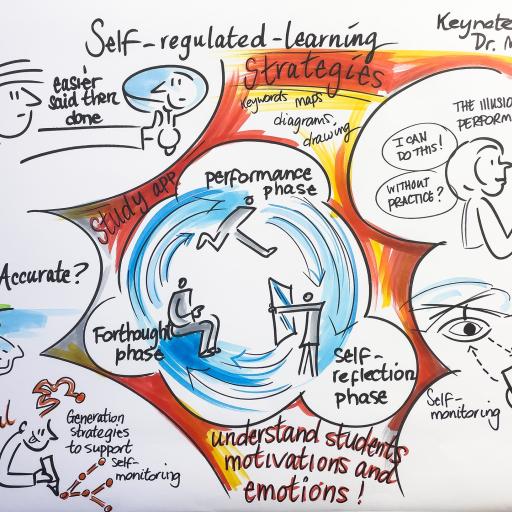 Self-regulated-learning
Strategies
Keynote
Dr. M
easier
said then
done
keywords maps
diagrams,
drawing
THE ILLUSIO
PERFORM
I CAN
DO THIS!
WITHOUT
PRACTICE?
Study app
performance
phase
Accurate?
Forthought
phase
Self-
reflection
phase
Self-
monitoring
Generation
strategies
to support
self-
monitoring
understand students
motivations and
emotions!